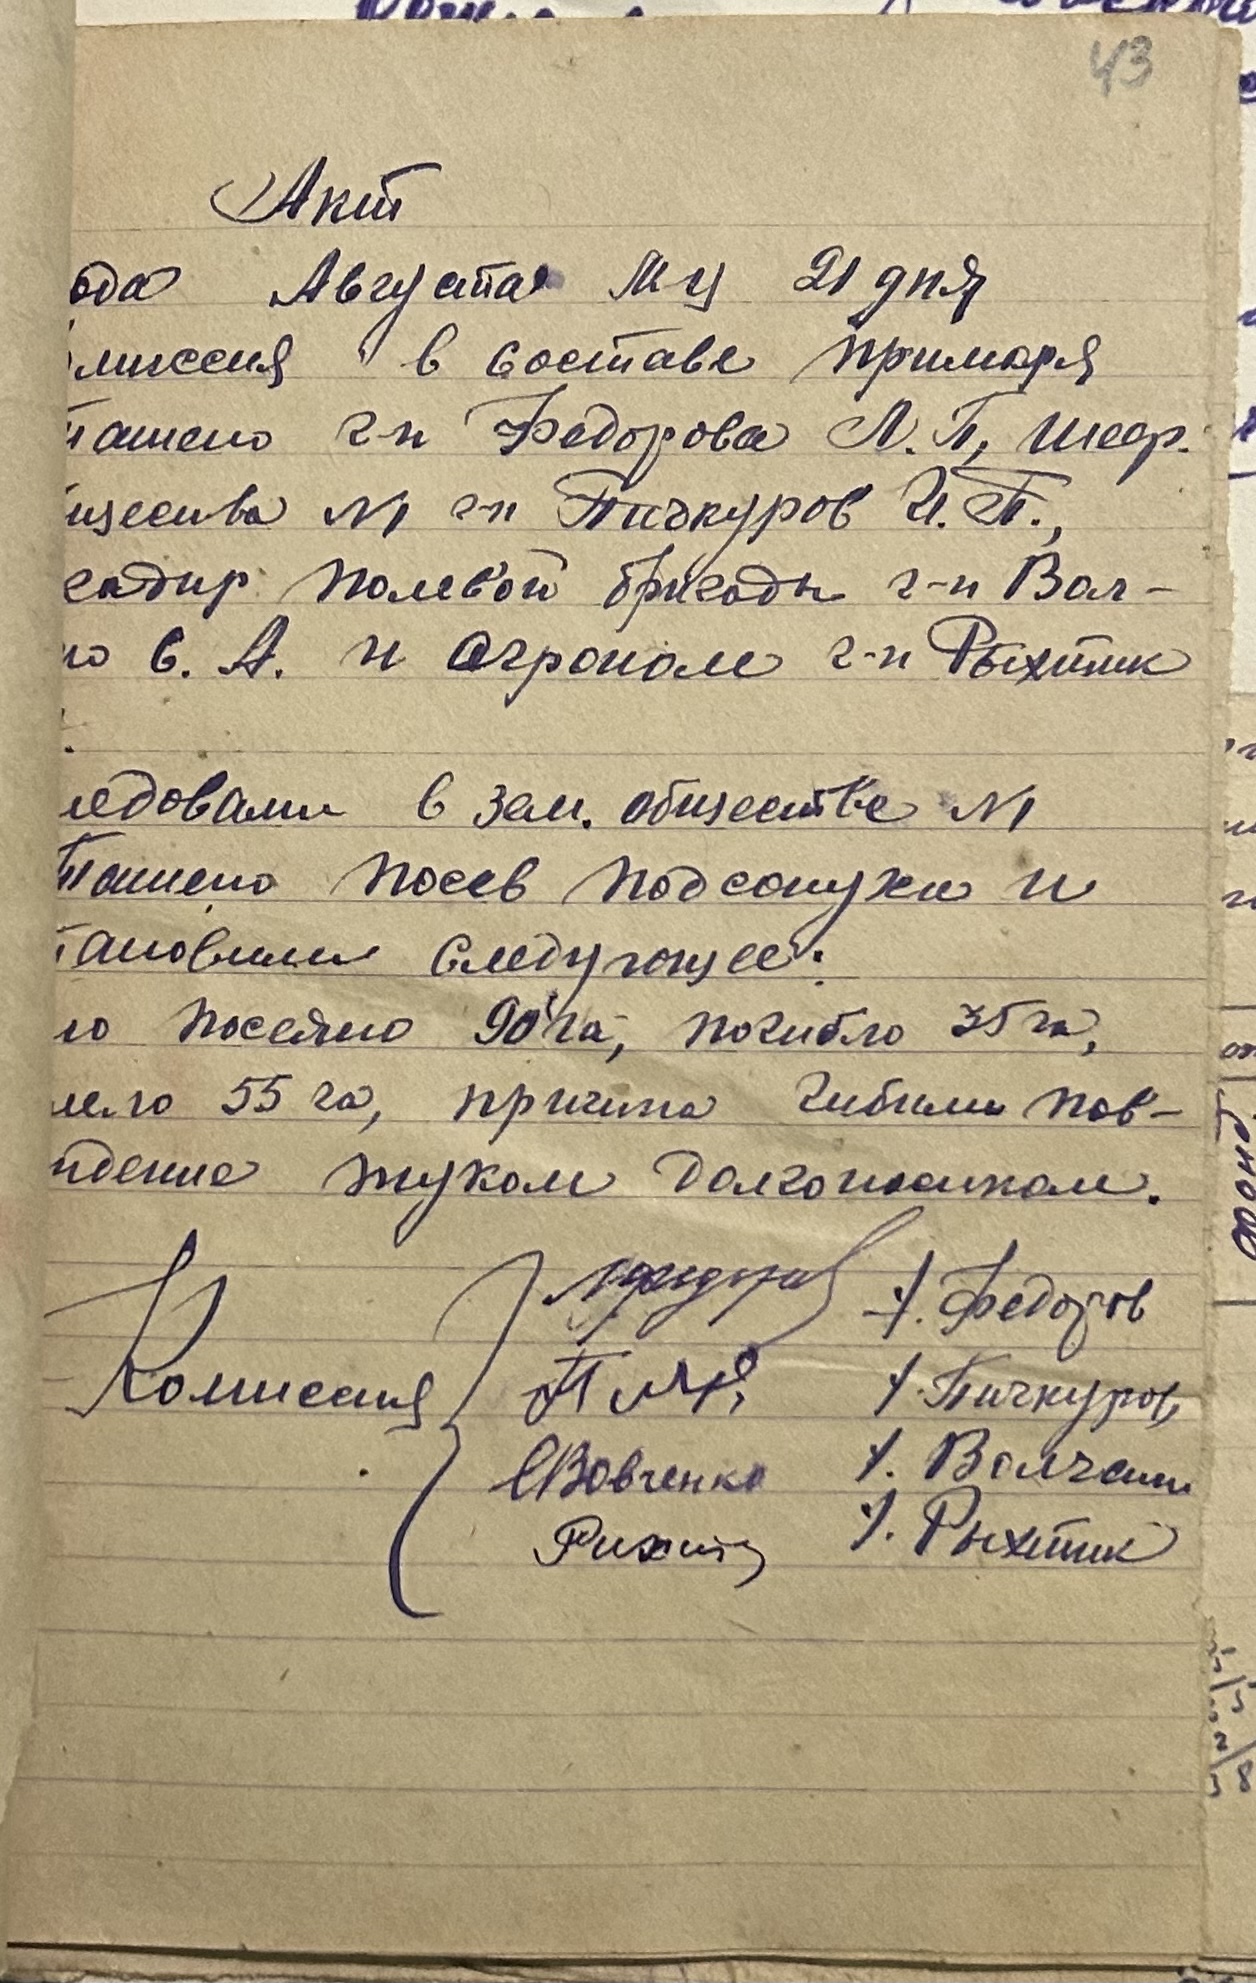 43
Акт
ода Августа м-ц 21 дня
миссия в составе примаря
ташено г-н Федорова Л. П, шеф.
щества N1 г-н Пичкуров И. П.,
гадир полевой бригады г-н Вол-
но С. А. и агроном г-н Рыхтик
ледовали в зем. обществе N1
Ташено посев подсолнуха и
тановили следующее:
ло посеяно 90 га, погибло 35 га,
лело 55 га, причина гибели пов-
ждение жуком долгоносиком.
Комиссия
/. Федоров
/. Пичкуров
СВовченко /. Волченко
/. Рыхтик